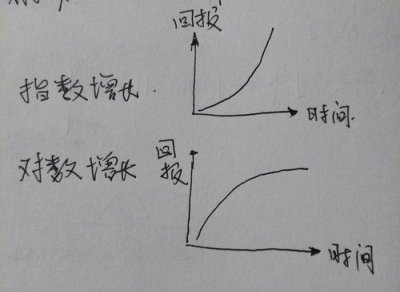 回报
指数增长.
时间.
回报
对数增长
时间